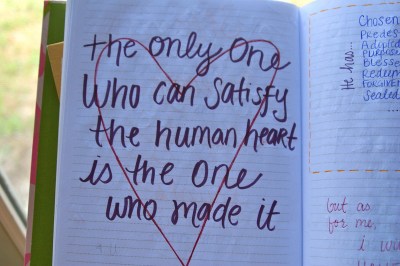 the only one
who can satisfy
the human heart
is the one
who made it
He has:
Chosen
Predes
Adopted
Blesse
Redeem
Forgiven
Sealed
...
but as
for me,
i wi